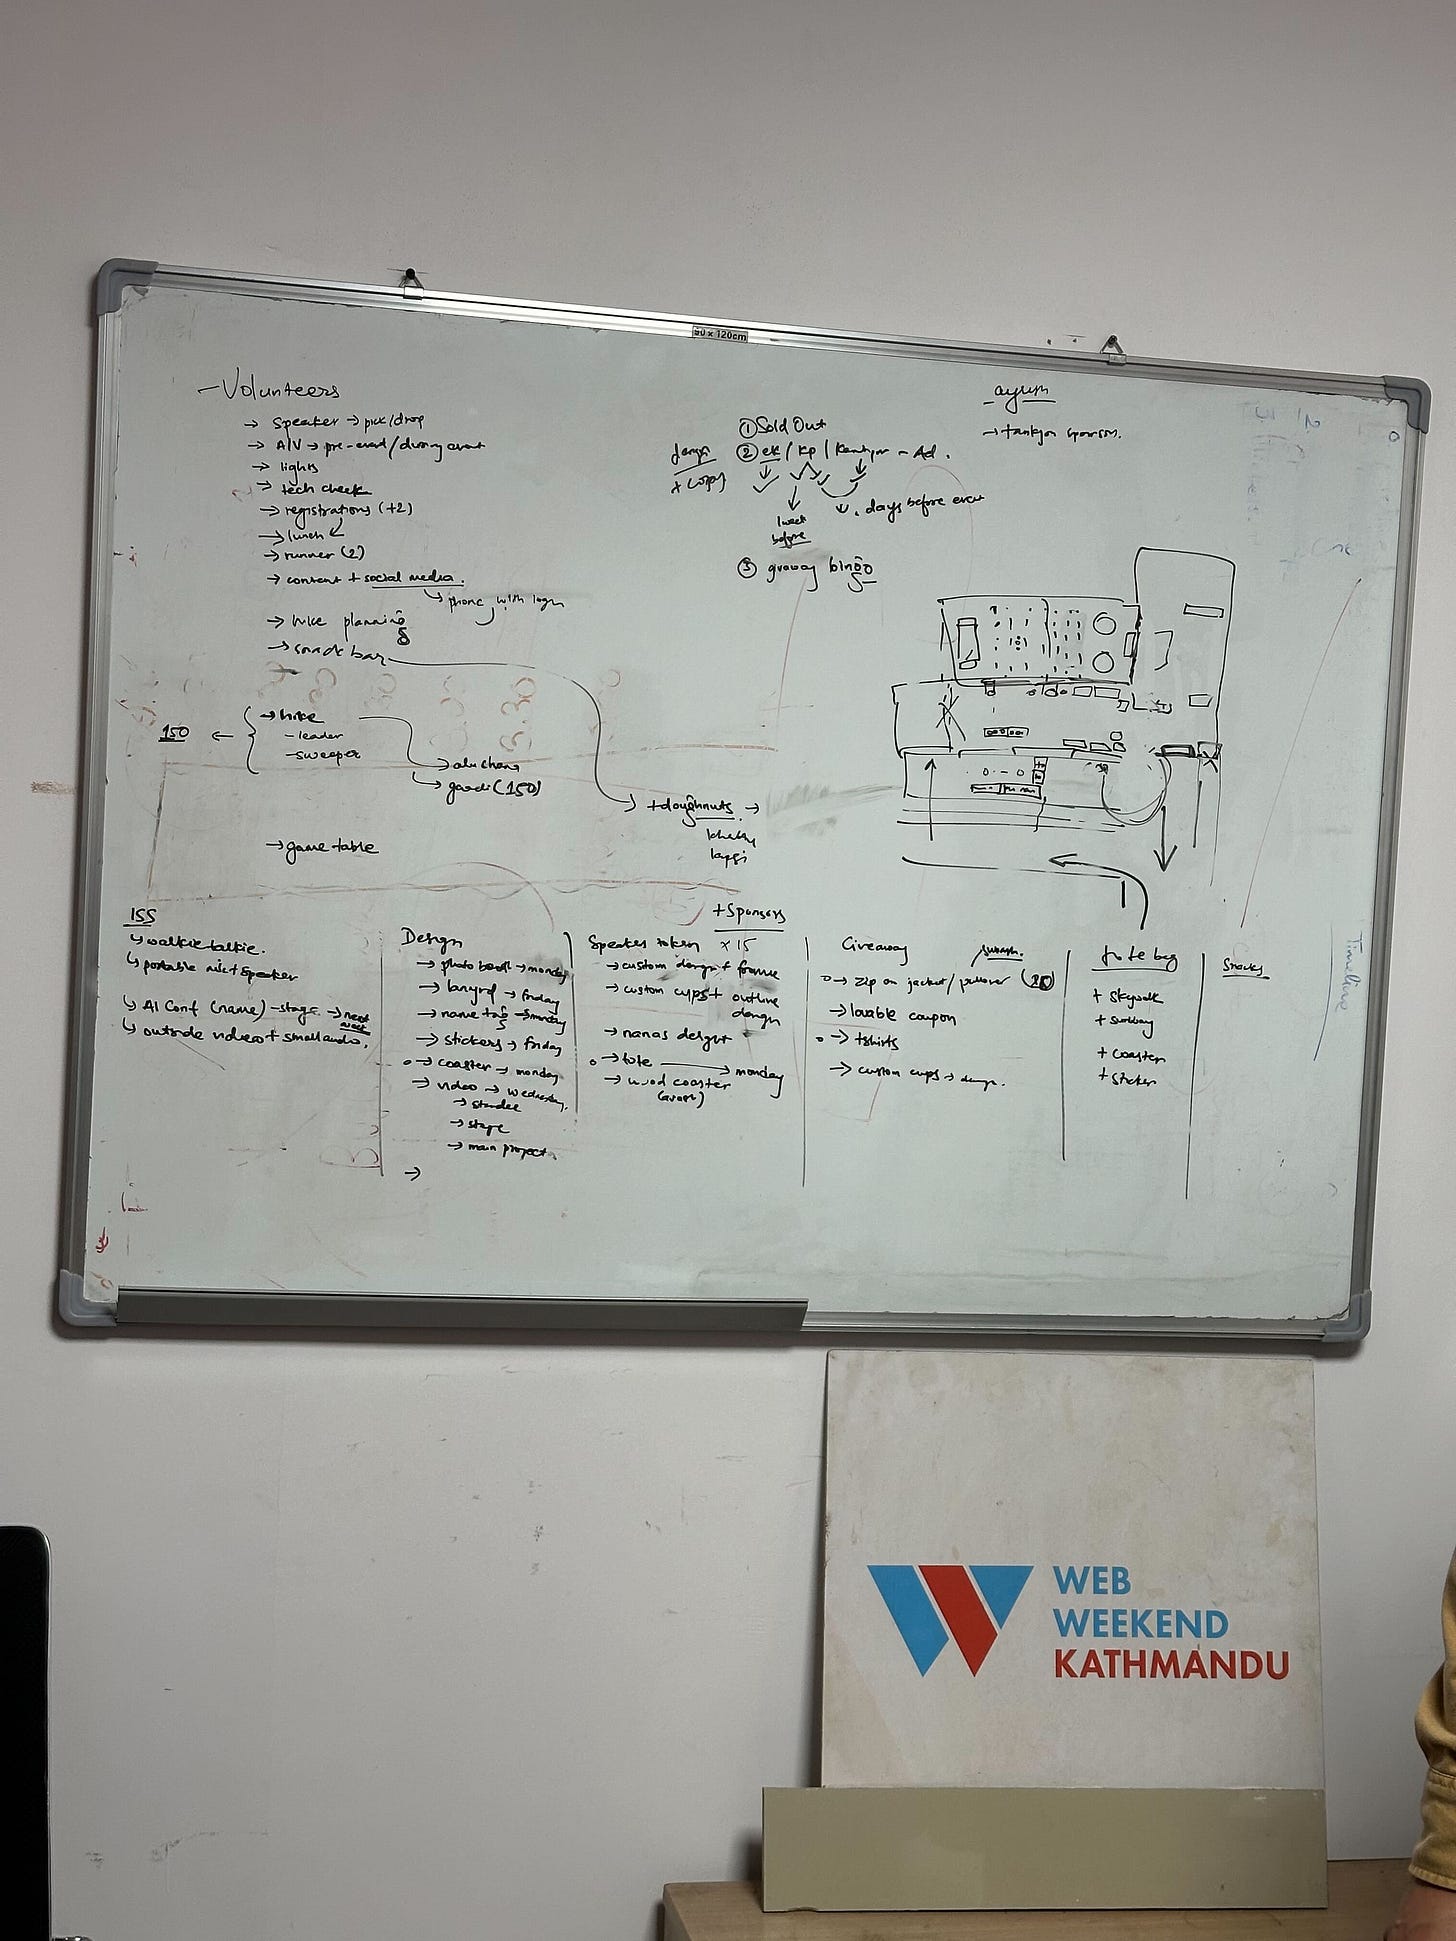 90 x 120cm
- Volunteers
→ Speaker → pick/drop
→ A/V → pre-event/during event
→ lights
→ tech check
→ registrations (+2)
→ lunch
→ runner (2)
→ content + social media.
phone with login
→ hike planning
→ snack bar
150 ←
→ hike
- leader
- sweeper
→ gardi (150)
+ doughnuts →
→ game table
① Sold Out
② ek / kp / Kantipur - Ad.
1 week
before
days before event
③ bingo
ayush
→ sponsors.
ISS
walkie talkie.
portable mic + speaker
AI Conf (name) - stage → next
week
outside video + small audio.
Design
→ photo booth → monday
→ lanyrd → friday
→ name tag → monday
→ stickers → friday
→ coaster → monday
→ video → wednesday.
→ standee
→ stage
→ main project.
→
+ Sponsors
Speaker token x 15
→ custom design + frame
→ custom cups + outline
design
→ nanas design
→ tote → monday
→ wood coaster
Giveaway
→ zip on jacket/pullover (20)
→ lovable coupon
→ tshirts
→ custom cups → design.
tote bag
+ skywalk
+ coaster
+ sticker
Snacks
Timeline
WEB
WEEKEND
KATHMANDU